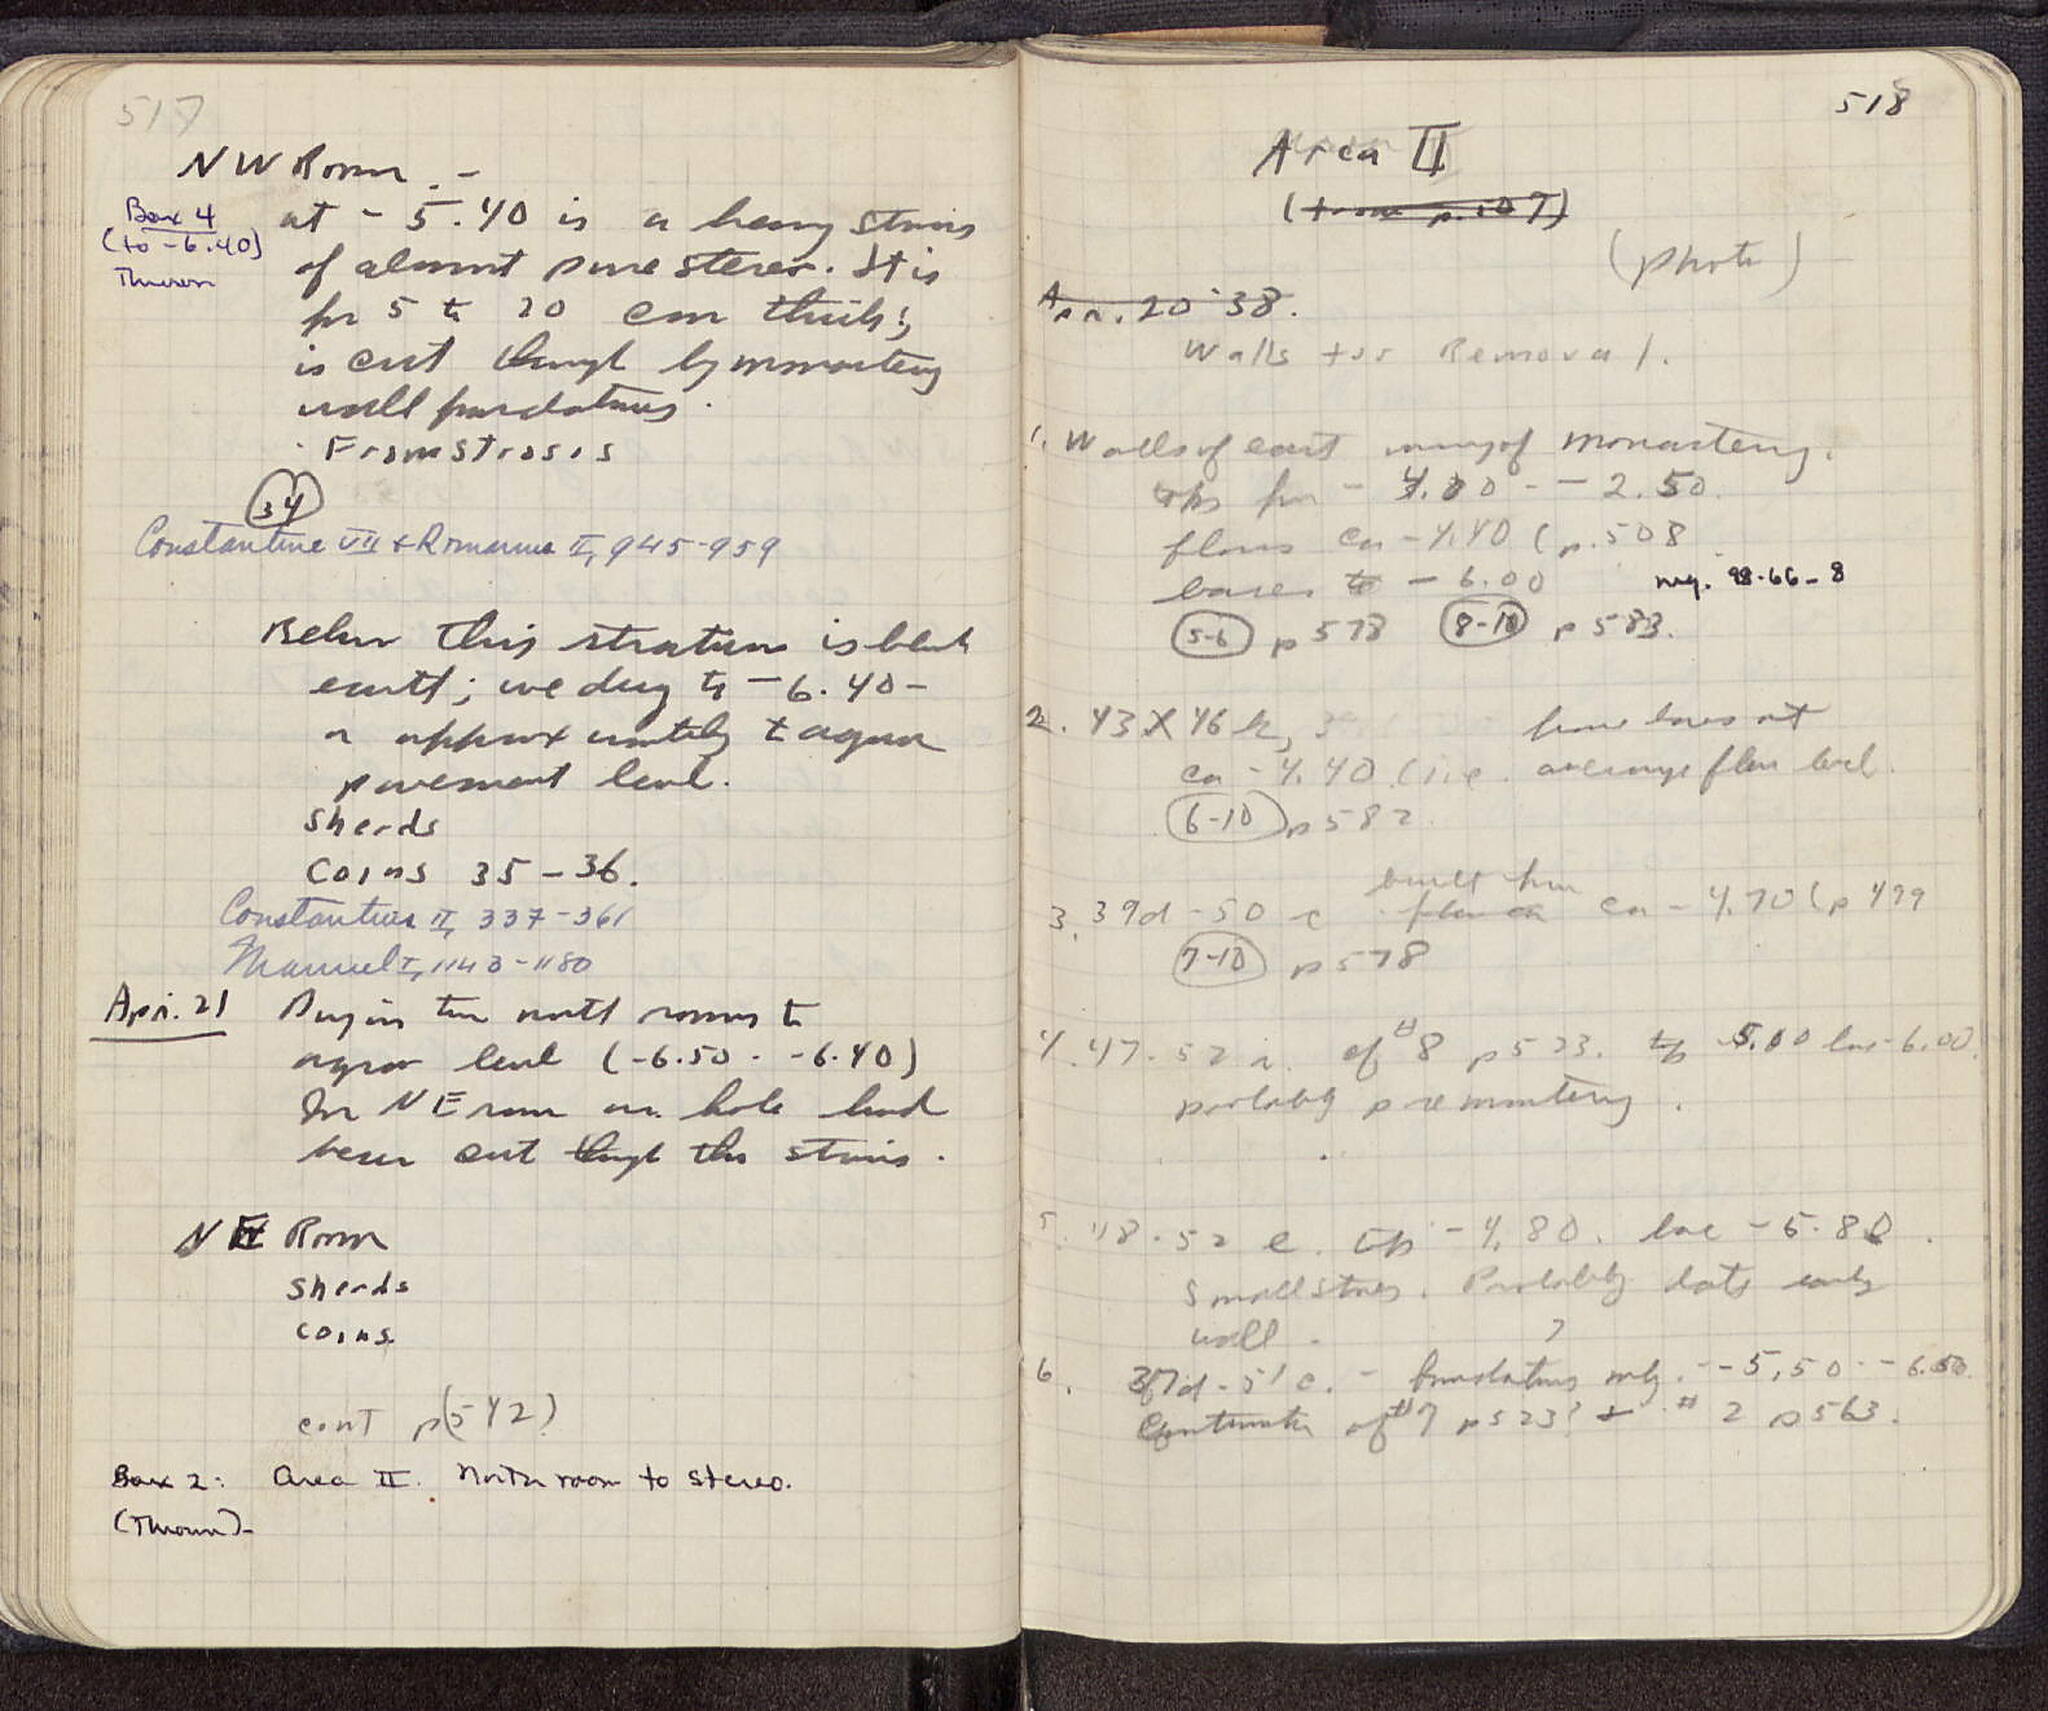 517
NW Room. -
Box 4
(to -6.40)
Thrown
at - 5.40 is a heavy strosis
of almost pure stereo. It is
fr 5 to 20 cm thick;
is cut through by monastery
wall foundations.
From Strosis
34
Constantine VII & Romanus II, 945-959
Below this stratum is black
earth; we dug to - 6.40 -
or approximately to agora
pavement level.
Sherds
Coins 35-36.
Constantius II, 337-361
Manuel I, 1143-1180
Apr. 21
Dug in two north rooms to
agora level (-6.50 - -6.40)
In NE room no hole had
been cut through the strosis.
NE Room
Sherds
Coins
cont p(542)
Box 2: Area II. North room to stereo.
(Thrown)-
518
Area II
(from p. 507)
(photo)
Apr. 20 '38.
Walls for Removal.
1. Walls of east wing of monastery.
tops fr - 4.00 - - 2.50.
floors ca - 4.40 (p. 508
bases to - 6.00
neg. 98-66-8
5-6 p 578 8-10 p 583.
2. 43 X 46 k, have bases at
ca - 4.40 (i.e. average floor level.
6-10 p 582.
3. 39d - 50 c built from ca - 4.70 (p 499
7-10 p 578
4. 47-52 i. cf #8 p 523. top - 5.00 bas - 6.00.
probably premonastery.
5. 48-52 e. top - 4.80. base - 5.80.
Small stones. Probably late early
wall - ?
6. 37d - 51 c. - foundations only. - - 5.50 - - 6.50.
Continuation of #7 p 523? + # 2 p 563.